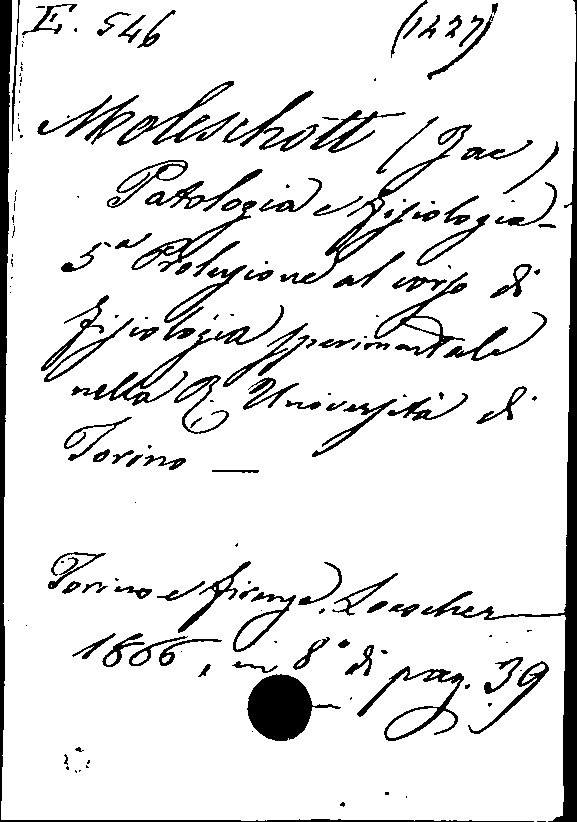 E. 546 (1227)
Moleschott (Jac)
Patologia e fisiologia -
5ª Prolusione al corso di
fisiologia sperimentale
nella R. Università di
Torino —
Torino e firenze. Loescher
1866, in 8° di pag. 39